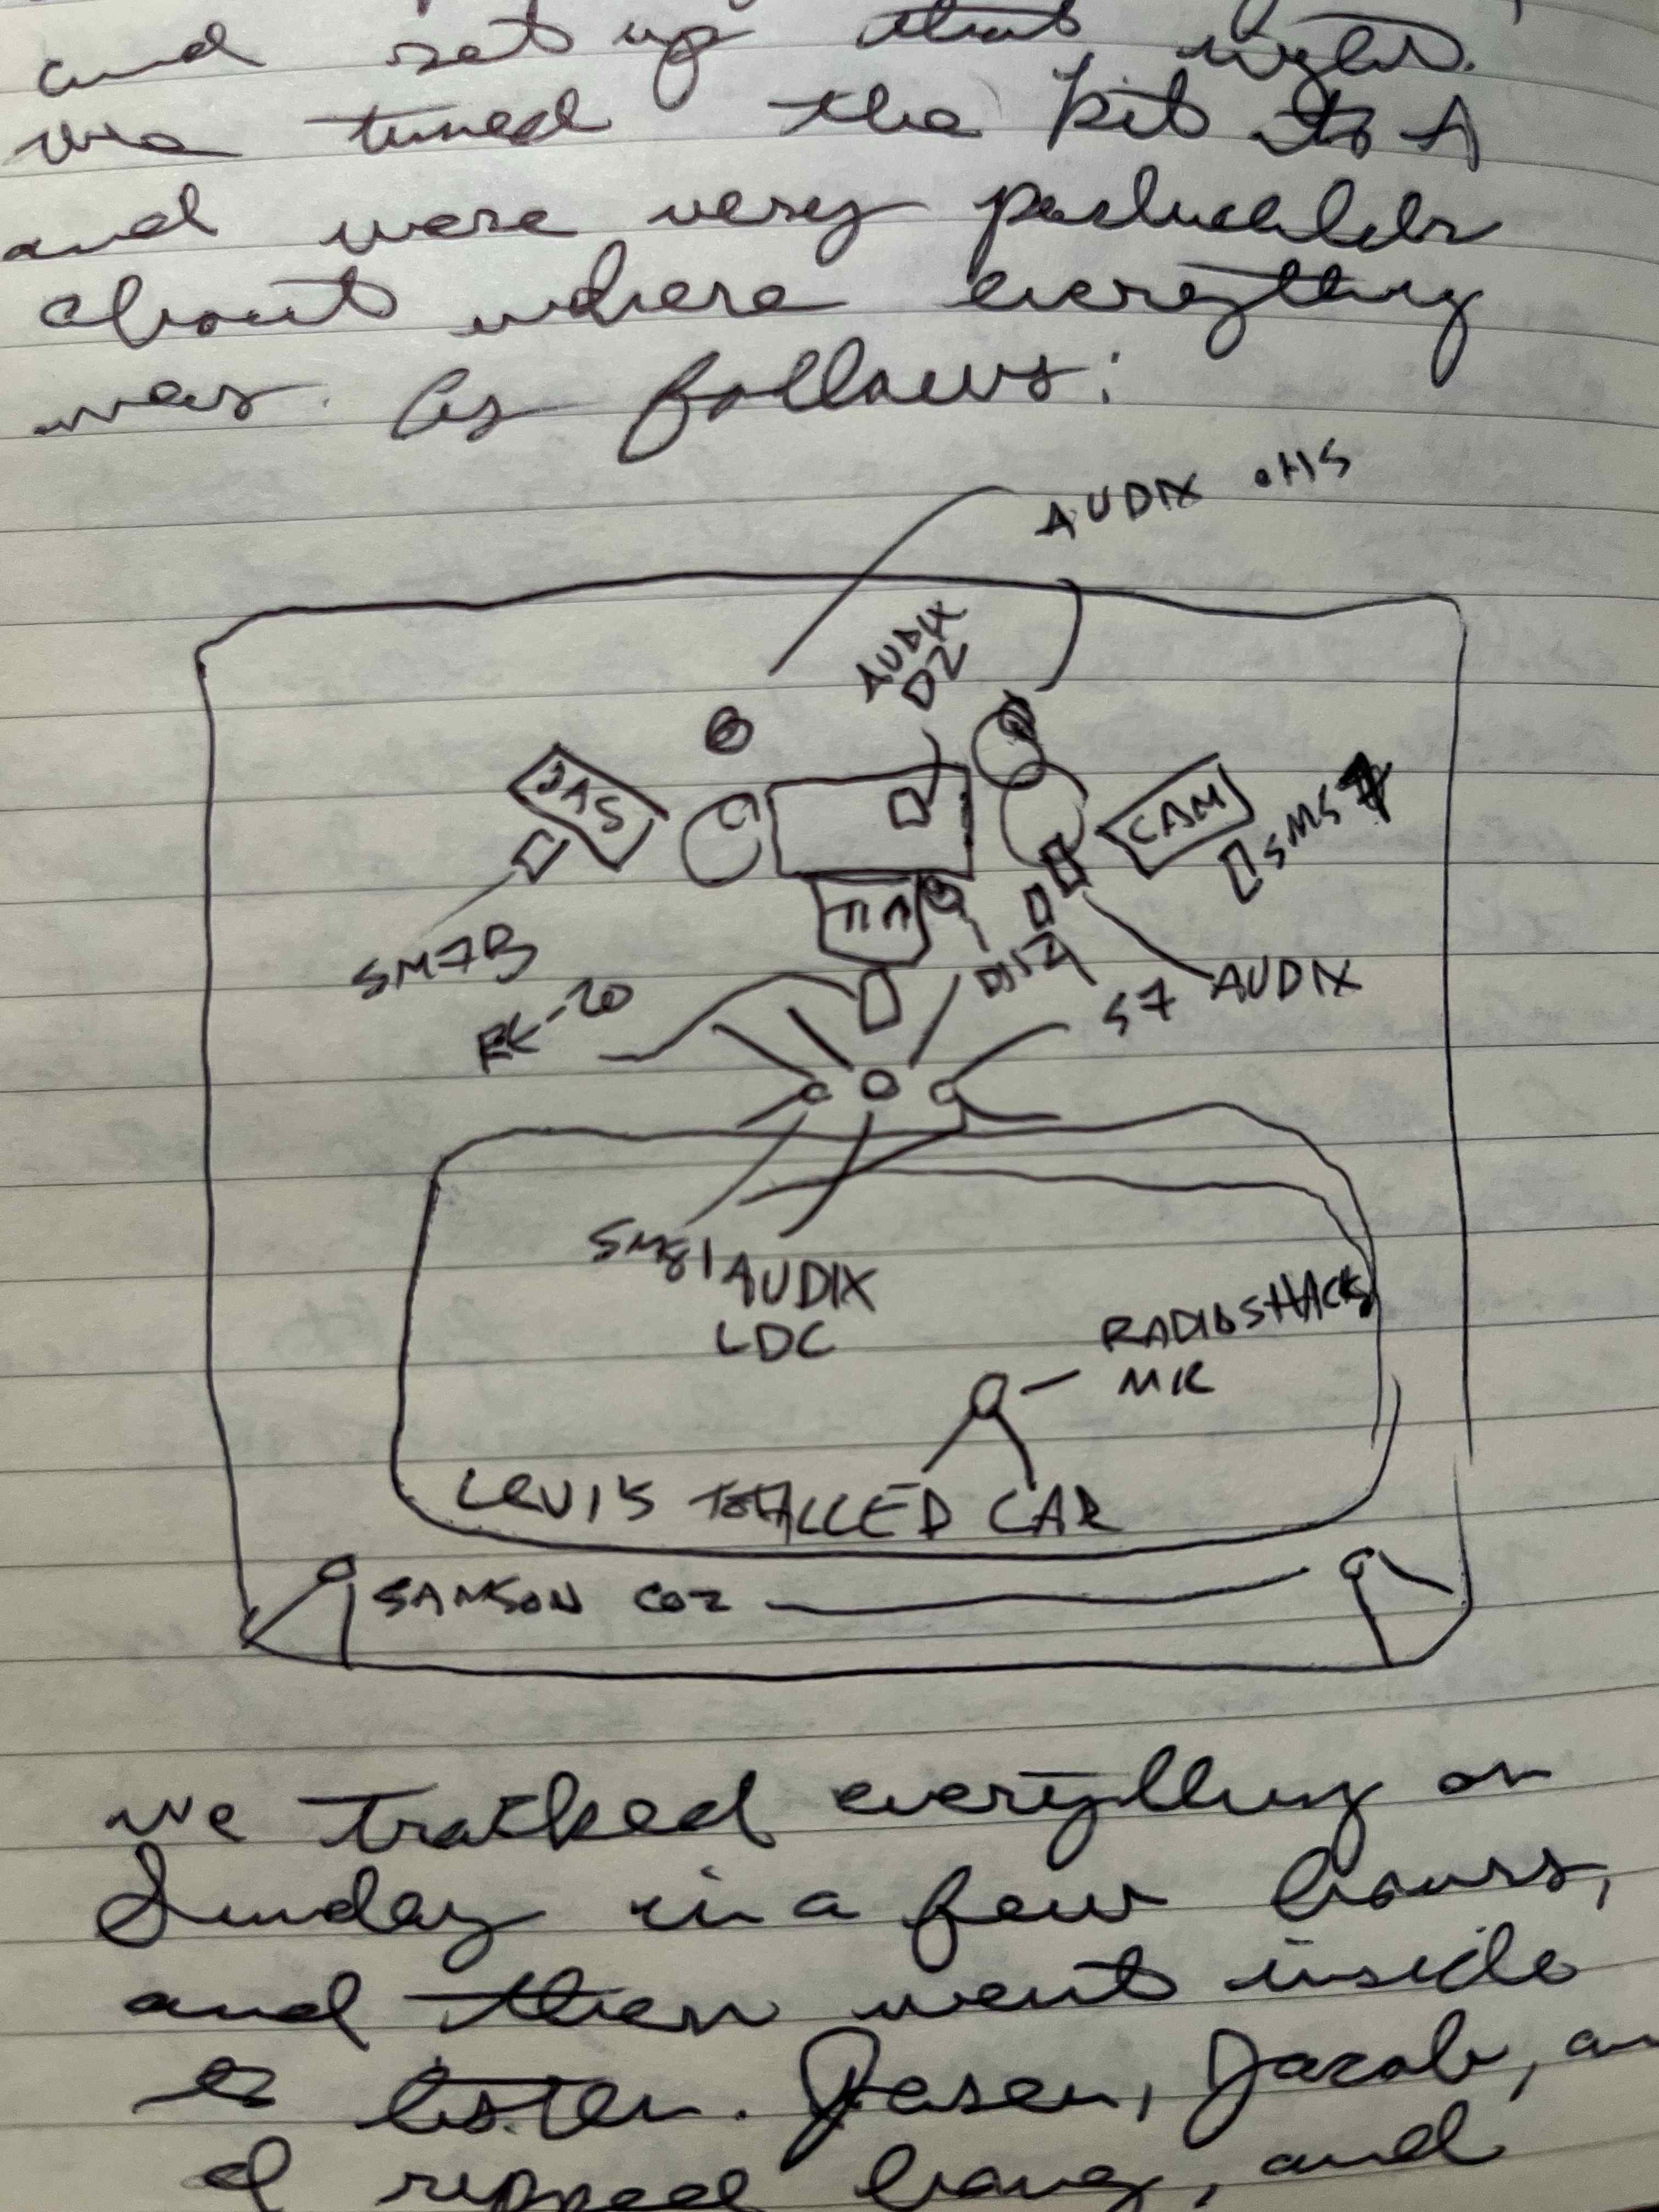 and set up that night.
We tuned the kit to A
and were very particular
about where everything
was. As follows:
AUDIX OHS
AUDIX
D2
JAS
CAM
SM57
TIM
SM7B
RE-20
D112
57
AUDIX
SM81
AUDIX
LDC
RADIOSHACK
MIC
LEVI'S TOTALLED CAR
SAMSON C02
We tracked everything on
Sunday in a few hours,
and then went inside
to listen. Jasen, Jacob, an
I ripped bong, and